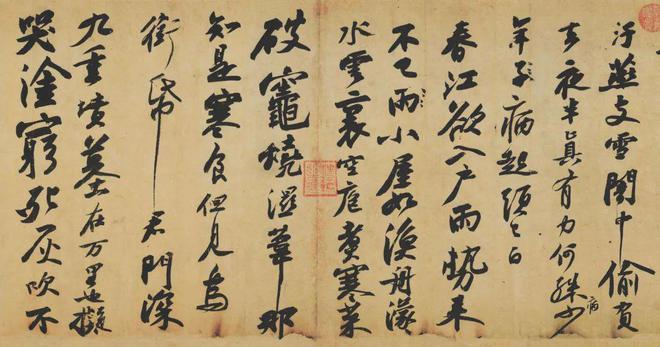 汙燕支雪闇中偷負
去夜半真有力何殊病少
年子病起須已白
春江欲入戶雨勢來
不已雨小屋如漁舟濛
水雲裏空庖煮寒菜
破竈燒濕葦那
知是寒食但見烏
銜帋君門深
九重墳墓在万里也擬
哭塗窮死灰吹不